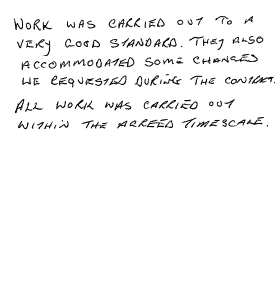 WORK WAS CARRIED OUT TO A
VERY GOOD STANDARD. THEY ALSO
ACCOMMODATED SOME CHANGES
WE REQUESTED DURING THE CONTRACT.
ALL WORK WAS CARRIED OUT
WITHIN THE AGREED TIMESCALE.